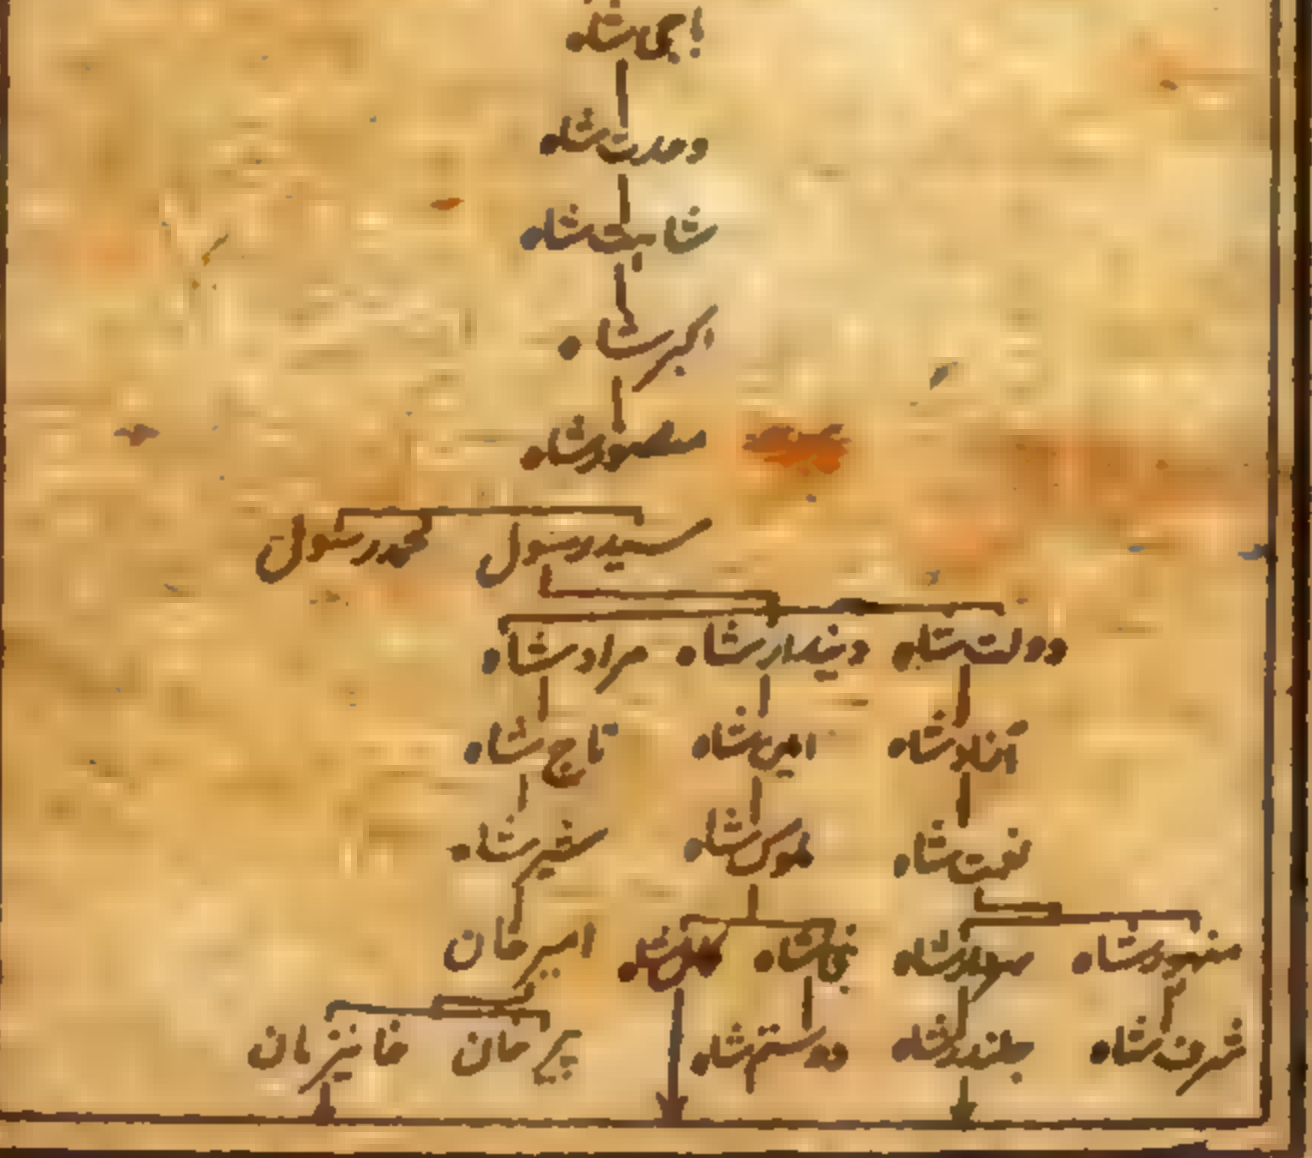 وحدت شاہ
شابت شاہ
اکبر شاہ
منصور شاہ
سید رسول محمد رسول
دولت شاہ دیندار شاہ مراد شاہ
آزاد شاہ امین شاہ تاج شاہ
نعمت شاہ موسیٰ شاہ شیر شاہ
سردار شاہ نبی شاہ امیر خان
شرف شاہ جلندر شاہ دوستم شاہ پیر خان خانیزمان